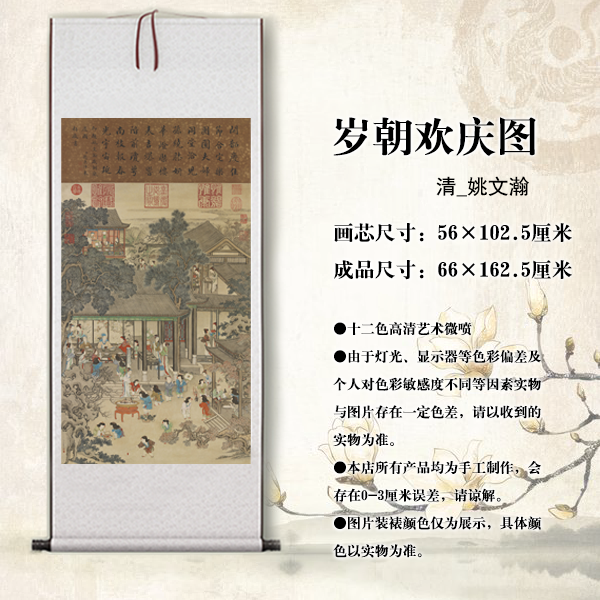 岁朝欢庆图
清_姚文瀚
画芯尺寸：56×102.5厘米
成品尺寸：66×162.5厘米
●十二色高清艺术微喷
●由于灯光、显示器等色彩偏差及
个人对色彩敏感度不同等因素实物
与图片存在一定色差，请以收到的
实物为准。
●本店所有产品均为手工制作，会
存在0-3厘米误差，请谅解。
●图片装裱颜色仅为展示，具体颜
色以实物为准。